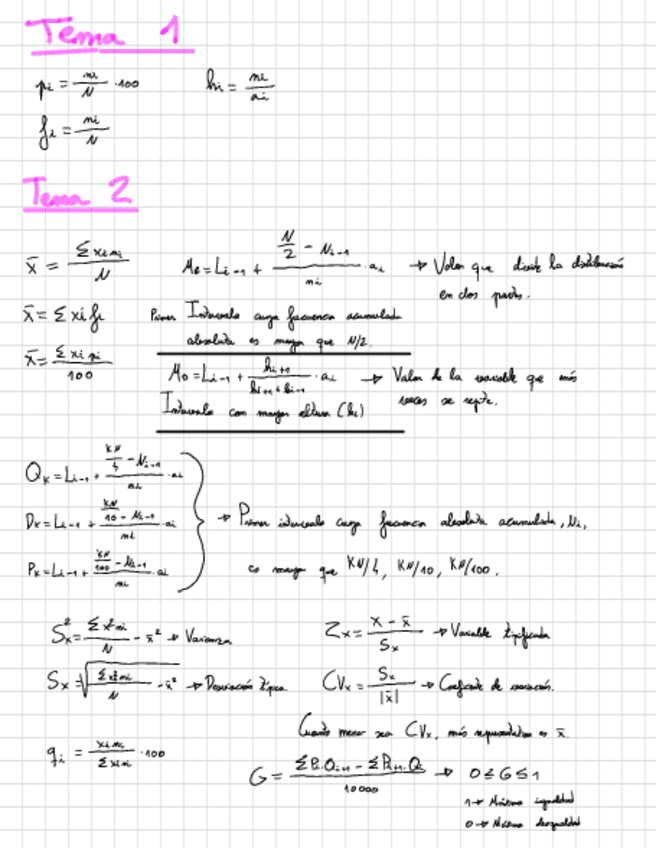 Tema 1
pi = ni/N · 100    hi = ni/ai
fi = ni/N
Tema 2
x̄ = Σxini/N    Me = Li-1 + (N/2 - Ni-1)/ni · ai → Valor que divide la distribución
en dos partes.
x̄ = Σxifi    Primer Intervalo cuya frecuencia acumulada
absoluta es mayor que N/2.
x̄ = Σxipi/100    Mo = Li-1 + hi+1/(hi+1 + hi-1) · ai → Valor de la variable que más
veces se repite.
Intervalo con mayor altura (hi)
Qk = Li-1 + (KN/4 - Ni-1)/ni · ai
Dk = Li-1 + (KN/10 - Ni-1)/ni · ai → Primer intervalo cuya frecuencia absoluta acumulada, Ni,
Pk = Li-1 + (KN/100 - Ni-1)/ni · ai    es mayor que KN/4, KN/10, KN/100.
Sx² = Σx²ini/N - x̄² → Varianza    Zx = (x - x̄)/Sx → Variable tipificada
Sx = √(Σx²ini/N - x̄²) → Desviación típica    CVx = Sx/|x̄| → Coeficiente de variación.
Cuanto menor sea CVx, más representativa es x̄.
qi = xini/Σxini · 100    G = (ΣPi·Qi+1 - ΣPi+1·Qi)/10000 → 0 ≤ G ≤ 1
1 → Máxima igualdad
0 → Máxima desigualdad